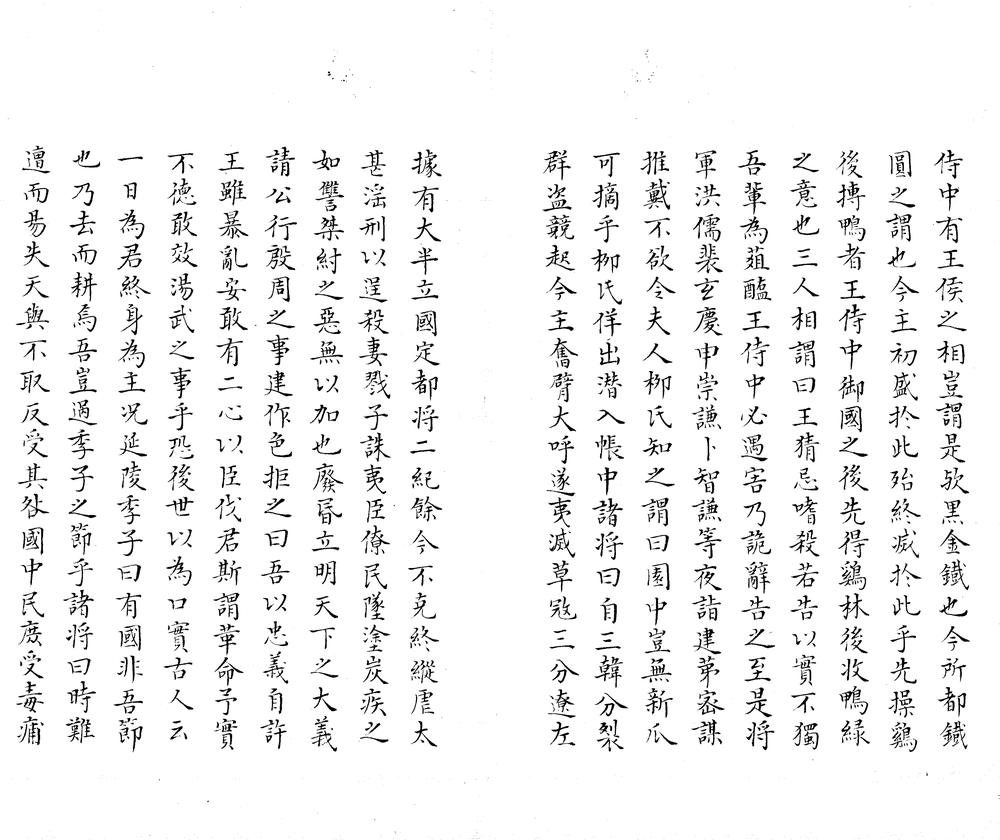 侍中有王侯之相豈謂是欤黑金鐵也今所都鐵
圓之謂也今主初盛扵此殆終滅扵此乎先操鷄
後搏鴨者王侍中御國之後先得鷄林後收鴨緑
之意也三人相謂曰王猜忌嗜殺若告以實不獨
吾輩為葅醢王侍中必遇害乃詭辭告之至是将
軍洪儒裴玄慶申崇謙卜智謙等夜詣建第密謀
推戴不欲令夫人栁氏知之謂曰園中豈無新瓜
可摘乎栁氏佯出潜入帳中諸将曰自三韓分裂
群盗競起今主奮臂大呼遂夷滅草宼三分遼左
據有大半立國定都将二紀餘今不克終縱虐太
甚滛刑以逞殺妻戮子誅夷臣僚民墜塗炭疾之
如讐桀紂之惡無以加也廢昬立明天下之大義
請公行殷周之事建作色拒之曰吾以忠義自許
王雖暴亂安敢有二心以臣伐君斯謂革命予實
不德敢效湯武之事乎恐後世以為口實古人云
一日為君終身為主况延陵季子曰有國非吾節
也乃去而耕焉吾豈過季子之節乎諸将曰時難
遭而易失天與不取反受其咎國中民庶受毒痡